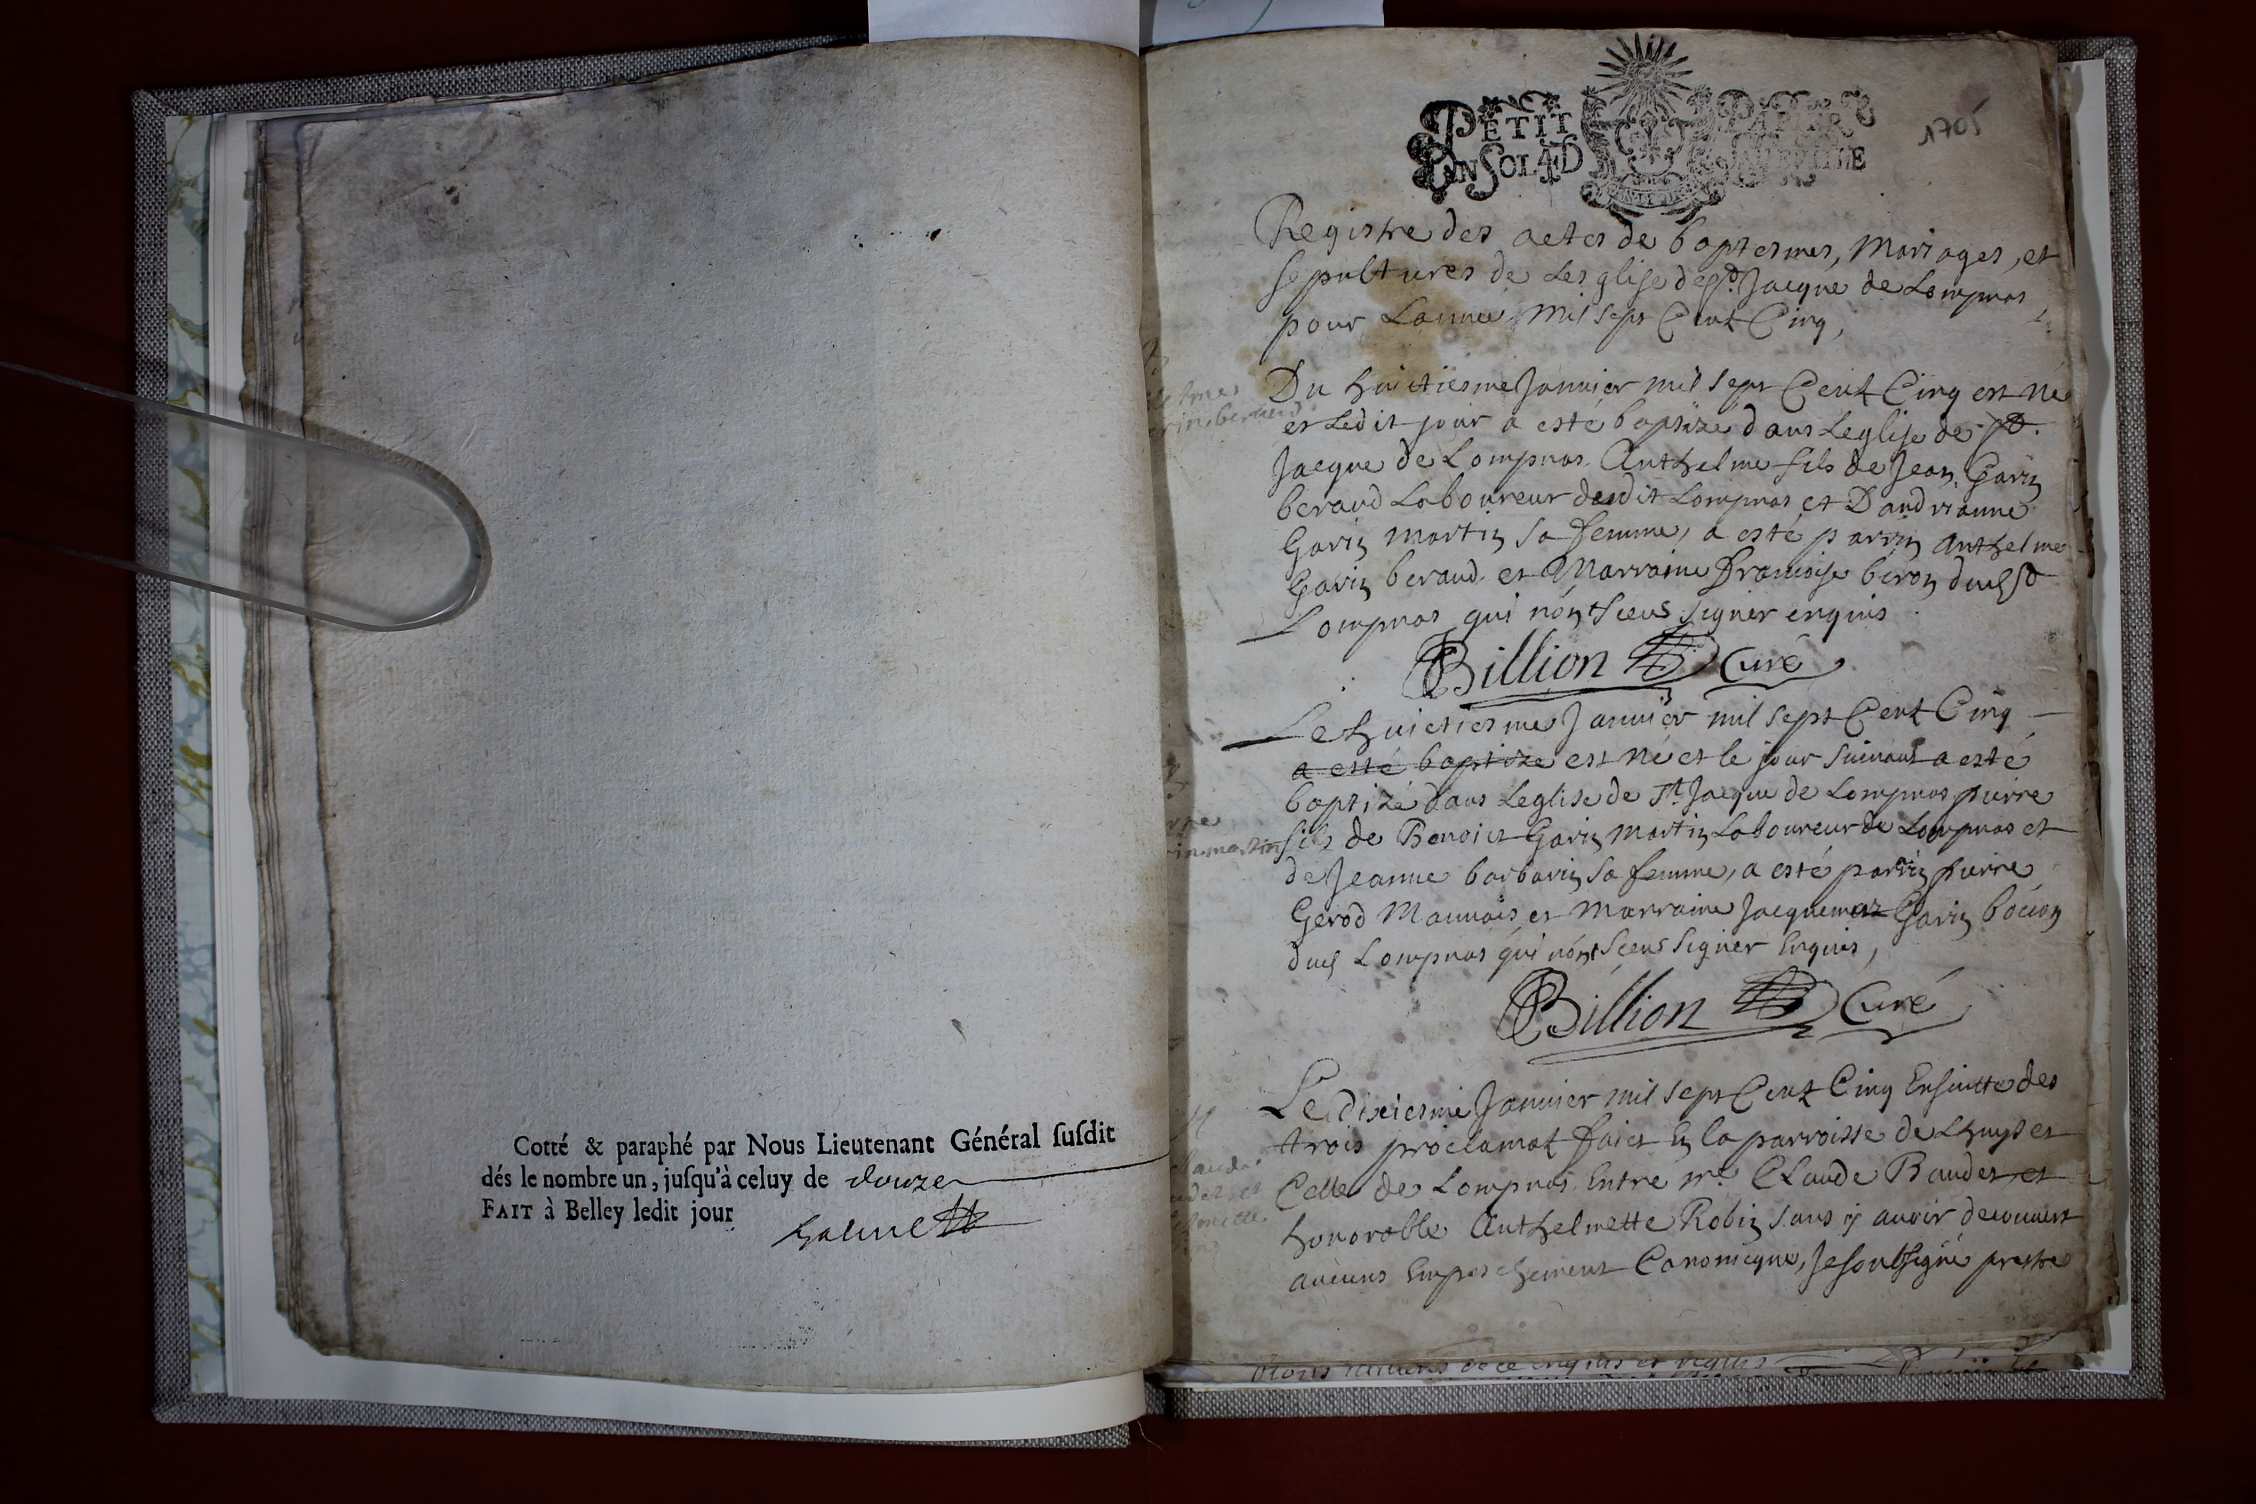 Cotté & paraphé par Nous Lieutenant Général suſdit
dés le nombre un, juſqu'à celuy de douze
FAIT à Belley ledit jour
PETIT PAPIER
UN SOL 4 D
1705
Registre des actes de baptesmes, Mariages, et
sepultures de Lesglise de St. Jacque de Lompnas
pour Lannée Mil sept Cent Cinq,
Du huictiesme Janvier mil sept Cent Cinq est né
et Ledit jour a esté baptizé dans Leglise de St.
Jacque de Lompnas Anthelme fils de Jean Garin
beraud Laboureur dudit Lompnas et Dandrianne
Garin martin sa femme, a esté parrin Anthelme
Garin beraud et Marraine francoise biron dud
Lompnas qui nónt sceus signer enquis
Billion Curé
Le huictiesme Janvier mil sept Cent Cinq
a esté baptize est né et le jour suivant a esté
baptizé dans Leglise de St Jacque de Lompnas pierre
fils de Benoict Garin martin Laboureur de Lompnas et
de Jeanne barbarin sa femme, a esté parrin pierre
Gerod Mauvais et Marraine Jacquemaz Garin bocion
dud Lompnas qui nónt sceus signer Enquis,
Billion Curé
martin
Le dixiesme Janvier mil sept Cent Cinq Ensuitte des
trois proclamat faict En la parroisse de Lhuys et
Celle de Lompnas Entre mr. Claude Baudet et
honorable Anthelmette Robin sans y avoir decouvert
aucuns Empeschement Canonicque, Je soubsigné prestre